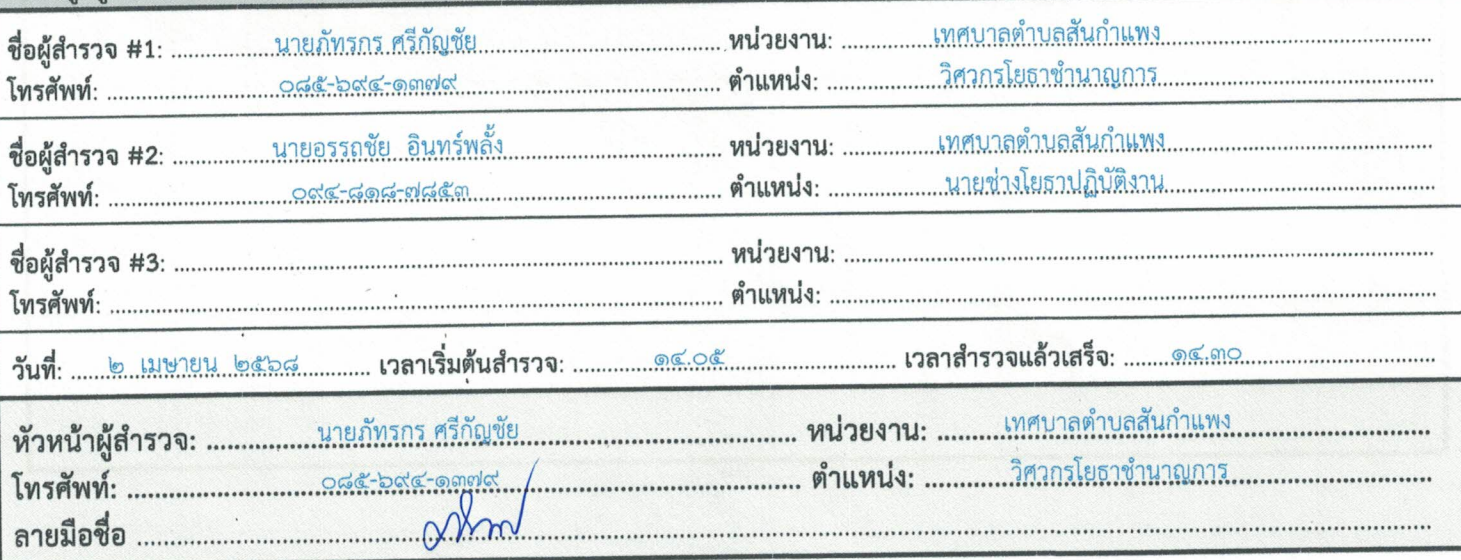 ชื่อผู้สำรวจ #1: นายภัทรกร ศรีกัญชัย หน่วยงาน: เทศบาลตำบลสันกำแพง
โทรศัพท์: ๐๘๕-๖๙๔-๑๓๗๙ ตำแหน่ง: วิศวกรโยธาชำนาญการ
ชื่อผู้สำรวจ #2: นายอรรถชัย อินทร์พลั้ง หน่วยงาน: เทศบาลตำบลสันกำแพง
โทรศัพท์: ๐๙๔-๘๑๘-๗๘๕๓ ตำแหน่ง: นายช่างโยธาปฏิบัติงาน
ชื่อผู้สำรวจ #3: หน่วยงาน:
โทรศัพท์: ตำแหน่ง:
วันที่: ๒ เมษายน ๒๕๖๘ เวลาเริ่มต้นสำรวจ: ๑๔.๐๕ เวลาสำรวจแล้วเสร็จ: ๑๔.๓๐
หัวหน้าผู้สำรวจ: นายภัทรกร ศรีกัญชัย หน่วยงาน: เทศบาลตำบลสันกำแพง
โทรศัพท์: ๐๘๕-๖๙๔-๑๓๗๙ ตำแหน่ง: วิศวกรโยธาชำนาญการ
ลายมือชื่อ